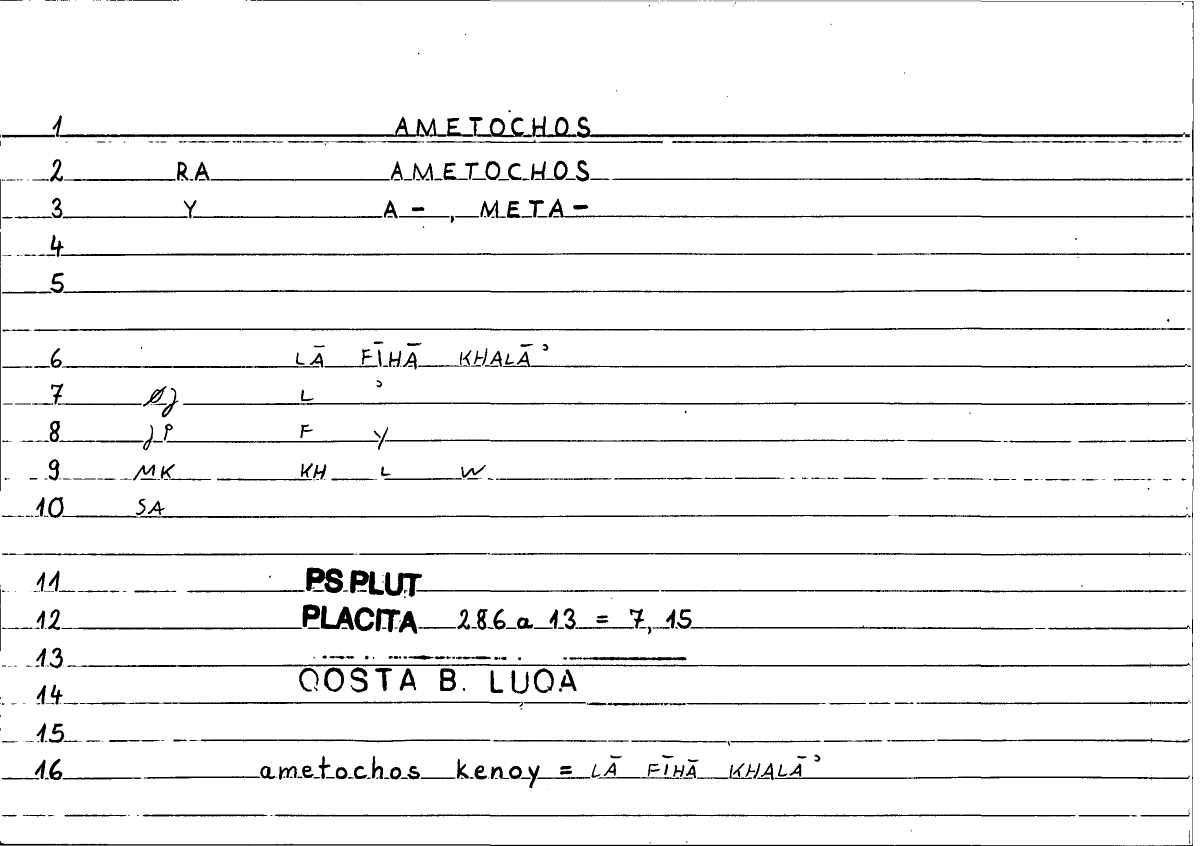 1 AMETOCHOS
2 RA AMETOCHOS
3 Y A-, META-
4
5
6 LĀ FĪHĀ KHALĀʾ
7 ØJ L ʾ
8 JP F Y
9 MK KH L W
10 SA
11 PS PLUT
12 PLACITA 286 a 13 = 7, 15
13
14 QOSTA B. LUQA
15
16 ametochos kenoy = LĀ FĪHĀ KHALĀʾ